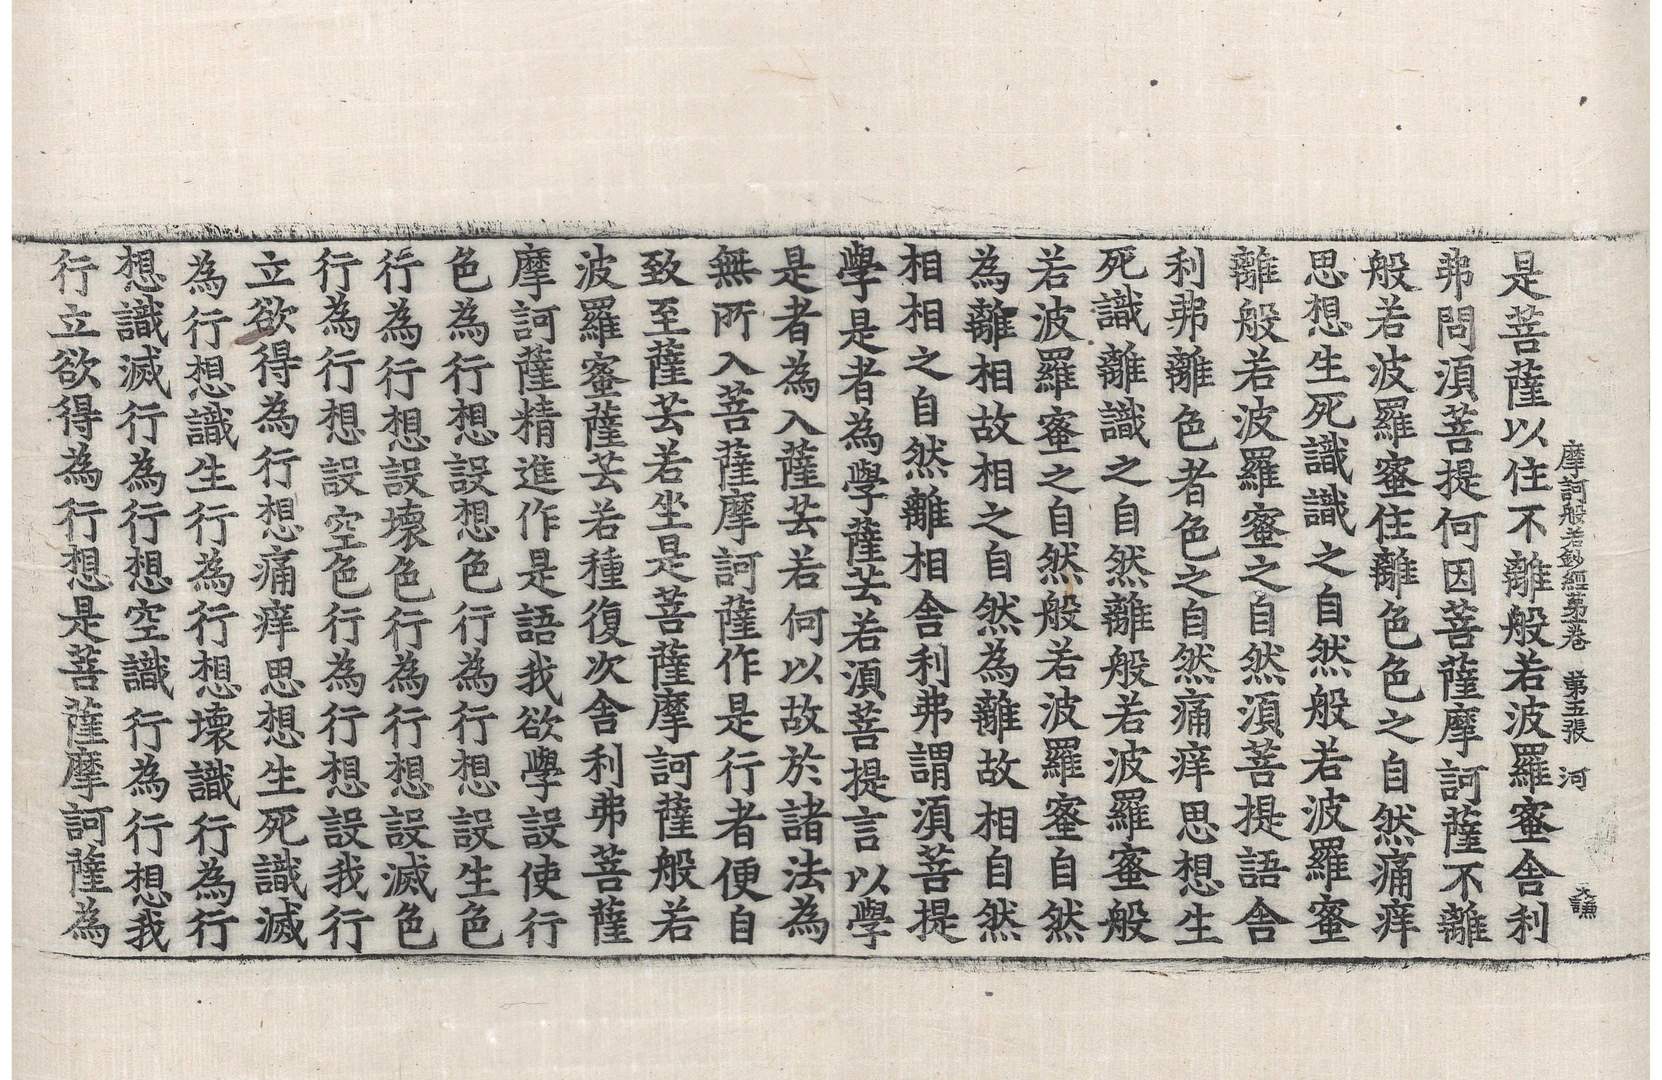 摩訶般若鈔經第一卷　第五張　河
是菩薩以住不離般若波羅蜜舍利
弗問湏菩提何因菩薩摩訶薩不離
般若波羅蜜住離色色之自然痛痒
思想生死識識之自然般若波羅蜜
離般若波羅蜜之自然湏菩提語舍
利弗離色者色之自然痛痒思想生
死識離識之自然離般若波羅蜜般
若波羅蜜之自然般若波羅蜜自然
為離相故相之自然為離故相自然
相相之自然離相舍利弗謂湏菩提
學是者為學薩芸若湏菩提言以學
是者為入薩芸若何以故於諸法為
無所入菩薩摩訶薩作是行者便自
致至薩芸若坐是菩薩摩訶薩般若
波羅蜜薩芸若種復次舍利弗菩薩
摩訶薩精進作是語我欲學設使行
色為行想設想色行為行想設生色
行為行想設壞色行為行想設滅色
行為行想設空色行為行想設我行
立欲得為行想痛痒思想生死識滅
為行想識生行為行想壞識行為行
想識滅行為行想空識行為行想我
行立欲得為行想是菩薩摩訶薩為